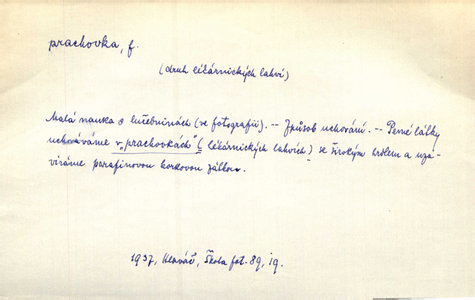 prachovka, f.
(druh lékárnických lahví)
Malá nauka o lučebninách (ve fotografii). -- Způsob uchování. -- Pevné látky
uchováváme v „prachovkách" (lékárnických lahvích) se širokým hrdlem a uza-
víráme parafinovou korkovou zátkou.
1937, Hlaváč, Škola fot. 89, ig.